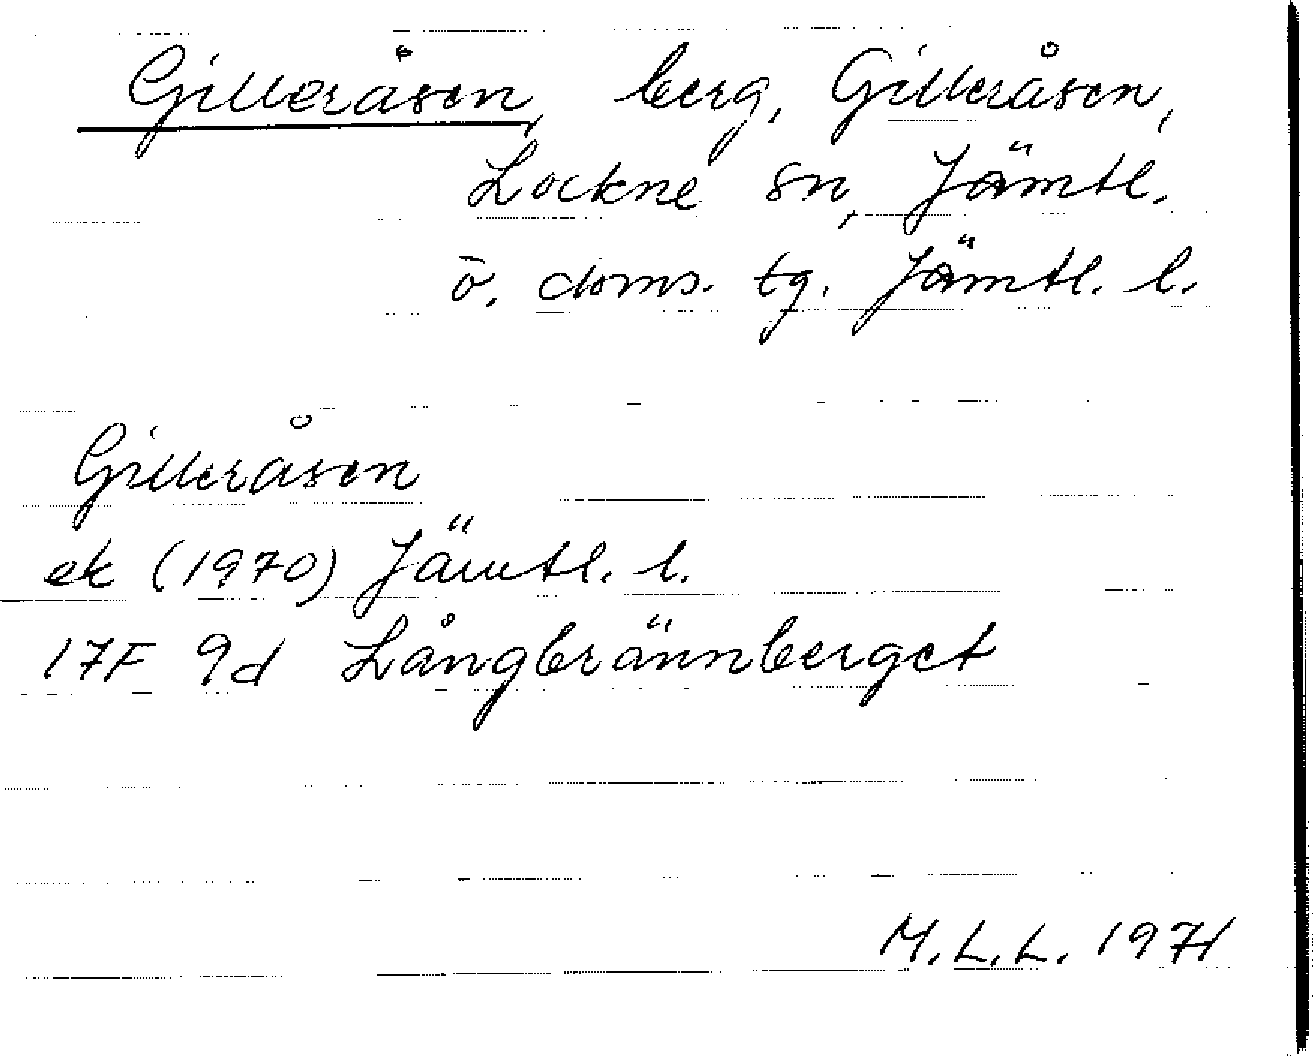 Gilleråsen, berg, Gilleråsen,
Lockne sn, Jämtl.
ö. doms. tg. Jämtl. l.
Gilleråsen
ek (1970) Jämtl. l.
17F 9d Långbrännberget
M.L.L. 1971